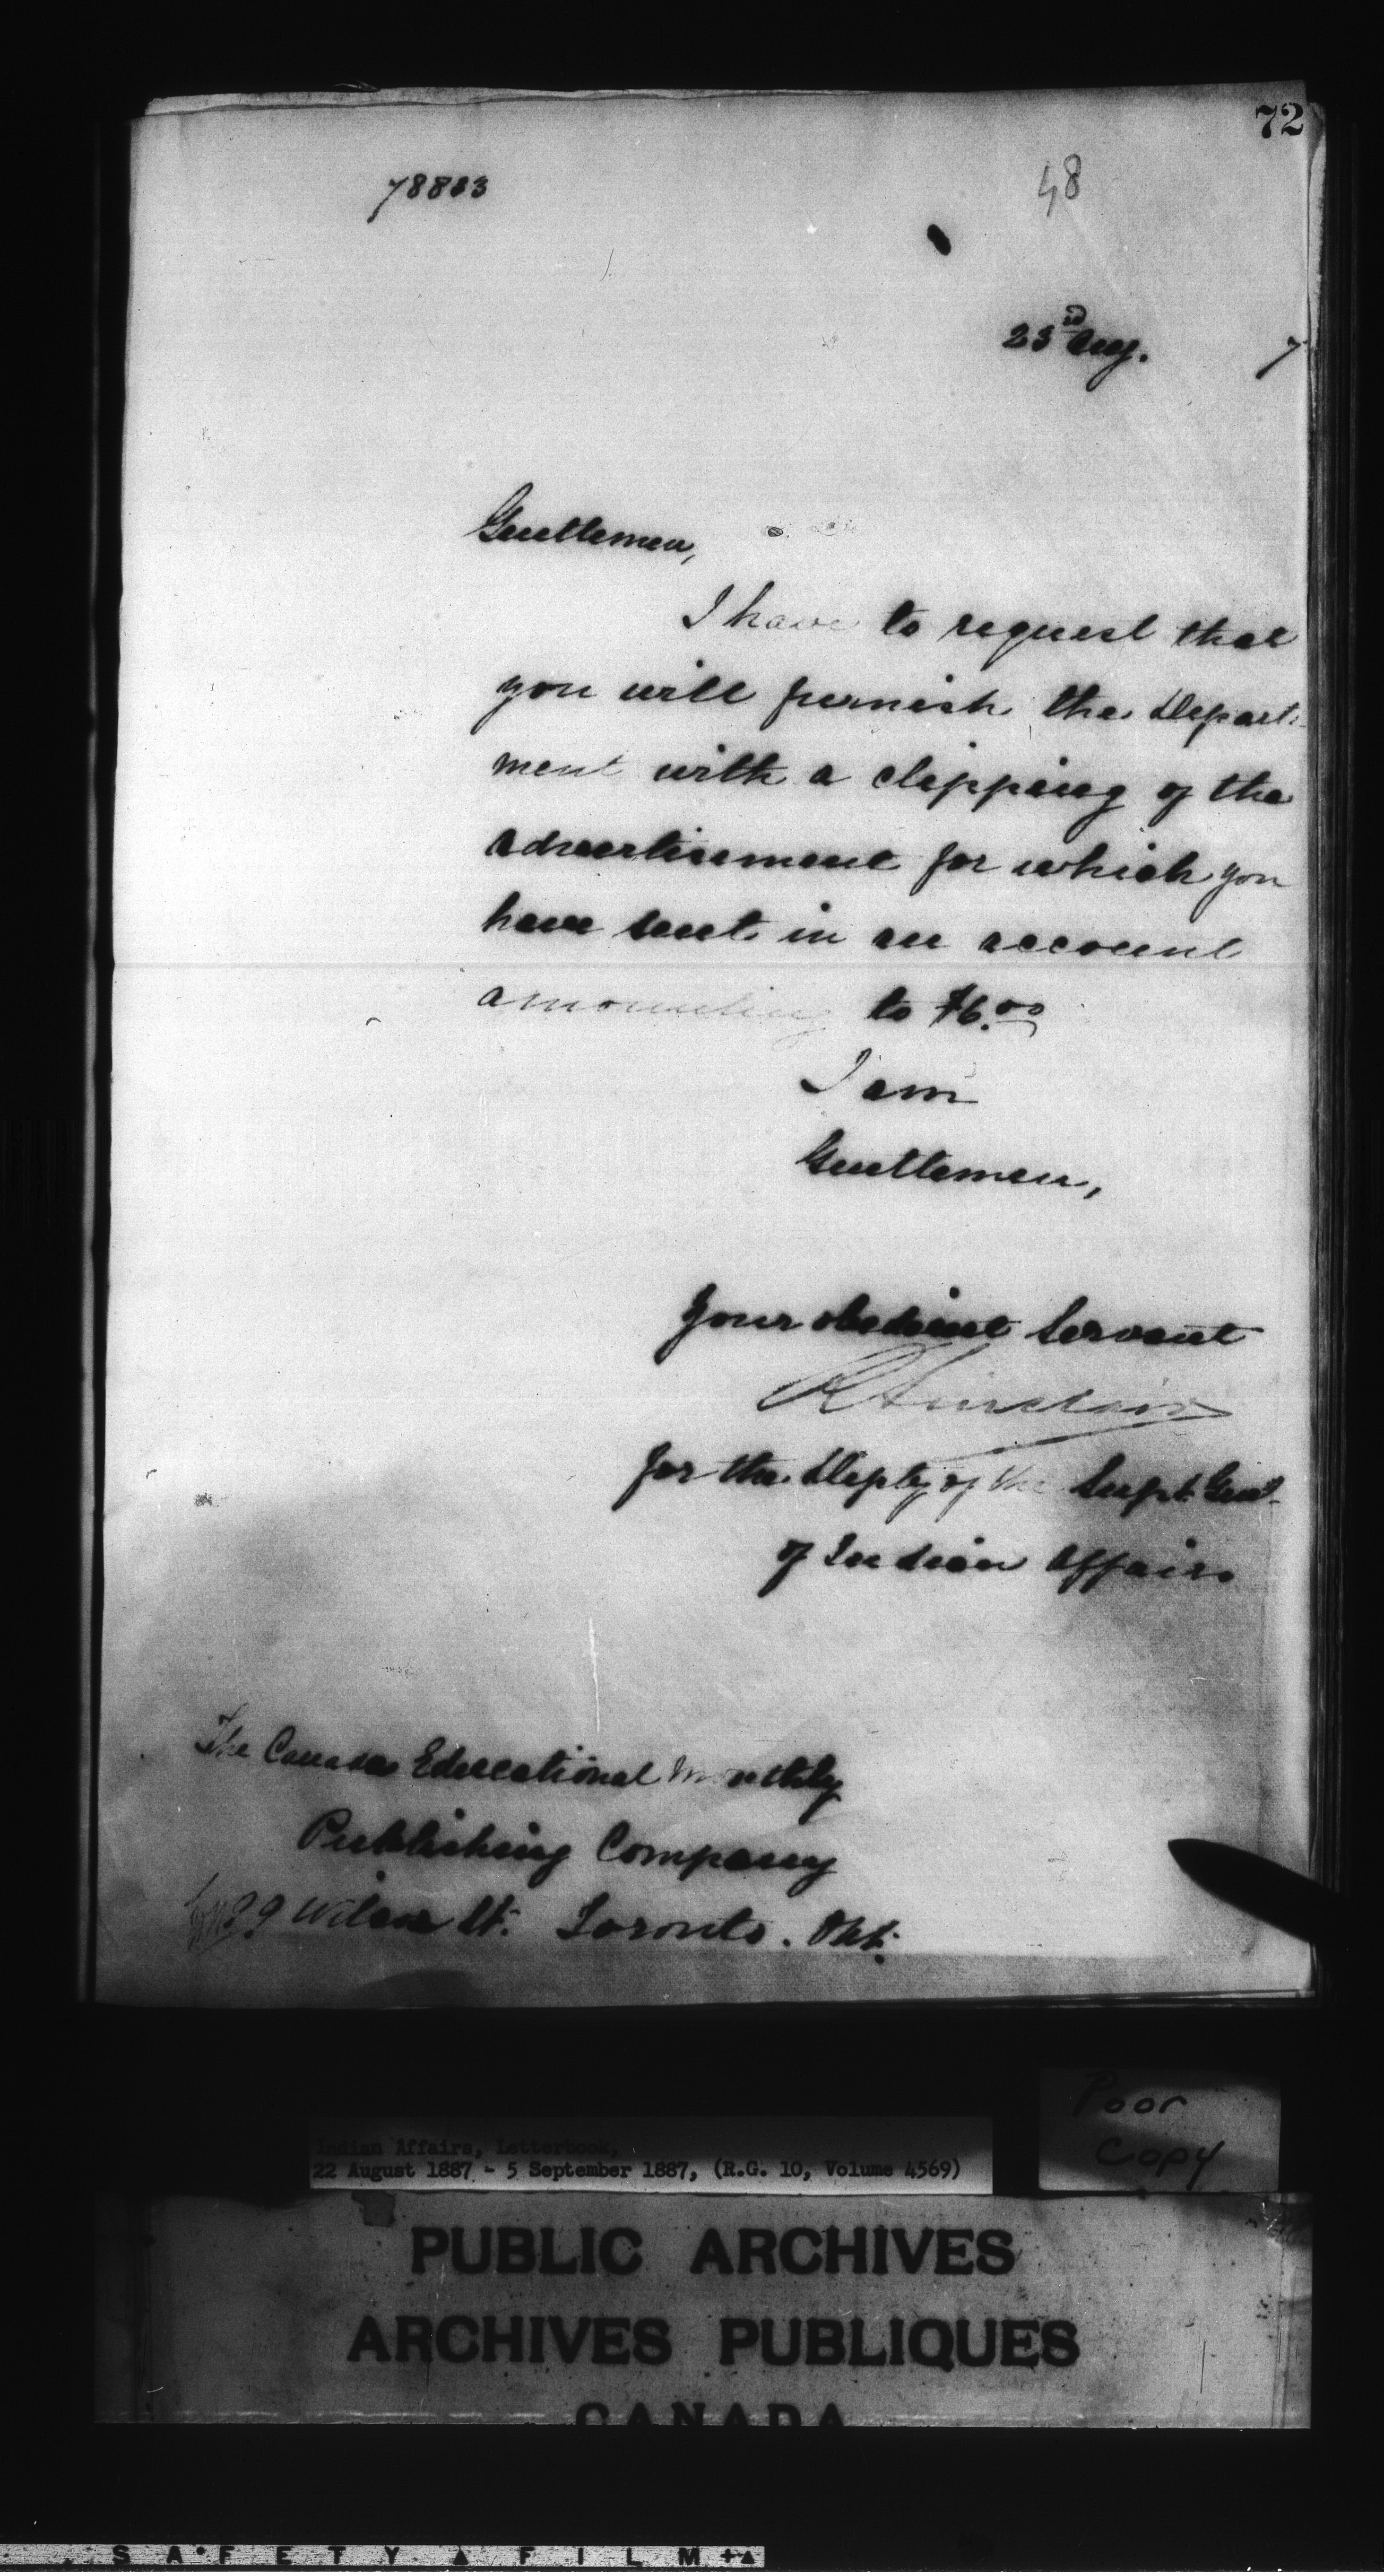 72
78883
48
23rd Aug. 7
Gentlemen,
I have to request that
you will furnish the Depart-
ment with a clipping of the
advertisement for which you
have sent in an account
amounting to $6.00
I am
Gentlemen,
Your obedient Servant
R Sinclair
for the Depty of the Supt. Genl
of Indian Affairs
The Canada Educational Monthly
Publishing Company
Wilcox St. Toronto. Ont.
Poor
Copy
Indian Affairs, Letterbook,
22 August 1887 - 5 September 1887, (R.G. 10, Volume 4569)
PUBLIC ARCHIVES
ARCHIVES PUBLIQUES
CANADA
SAFETY FILM